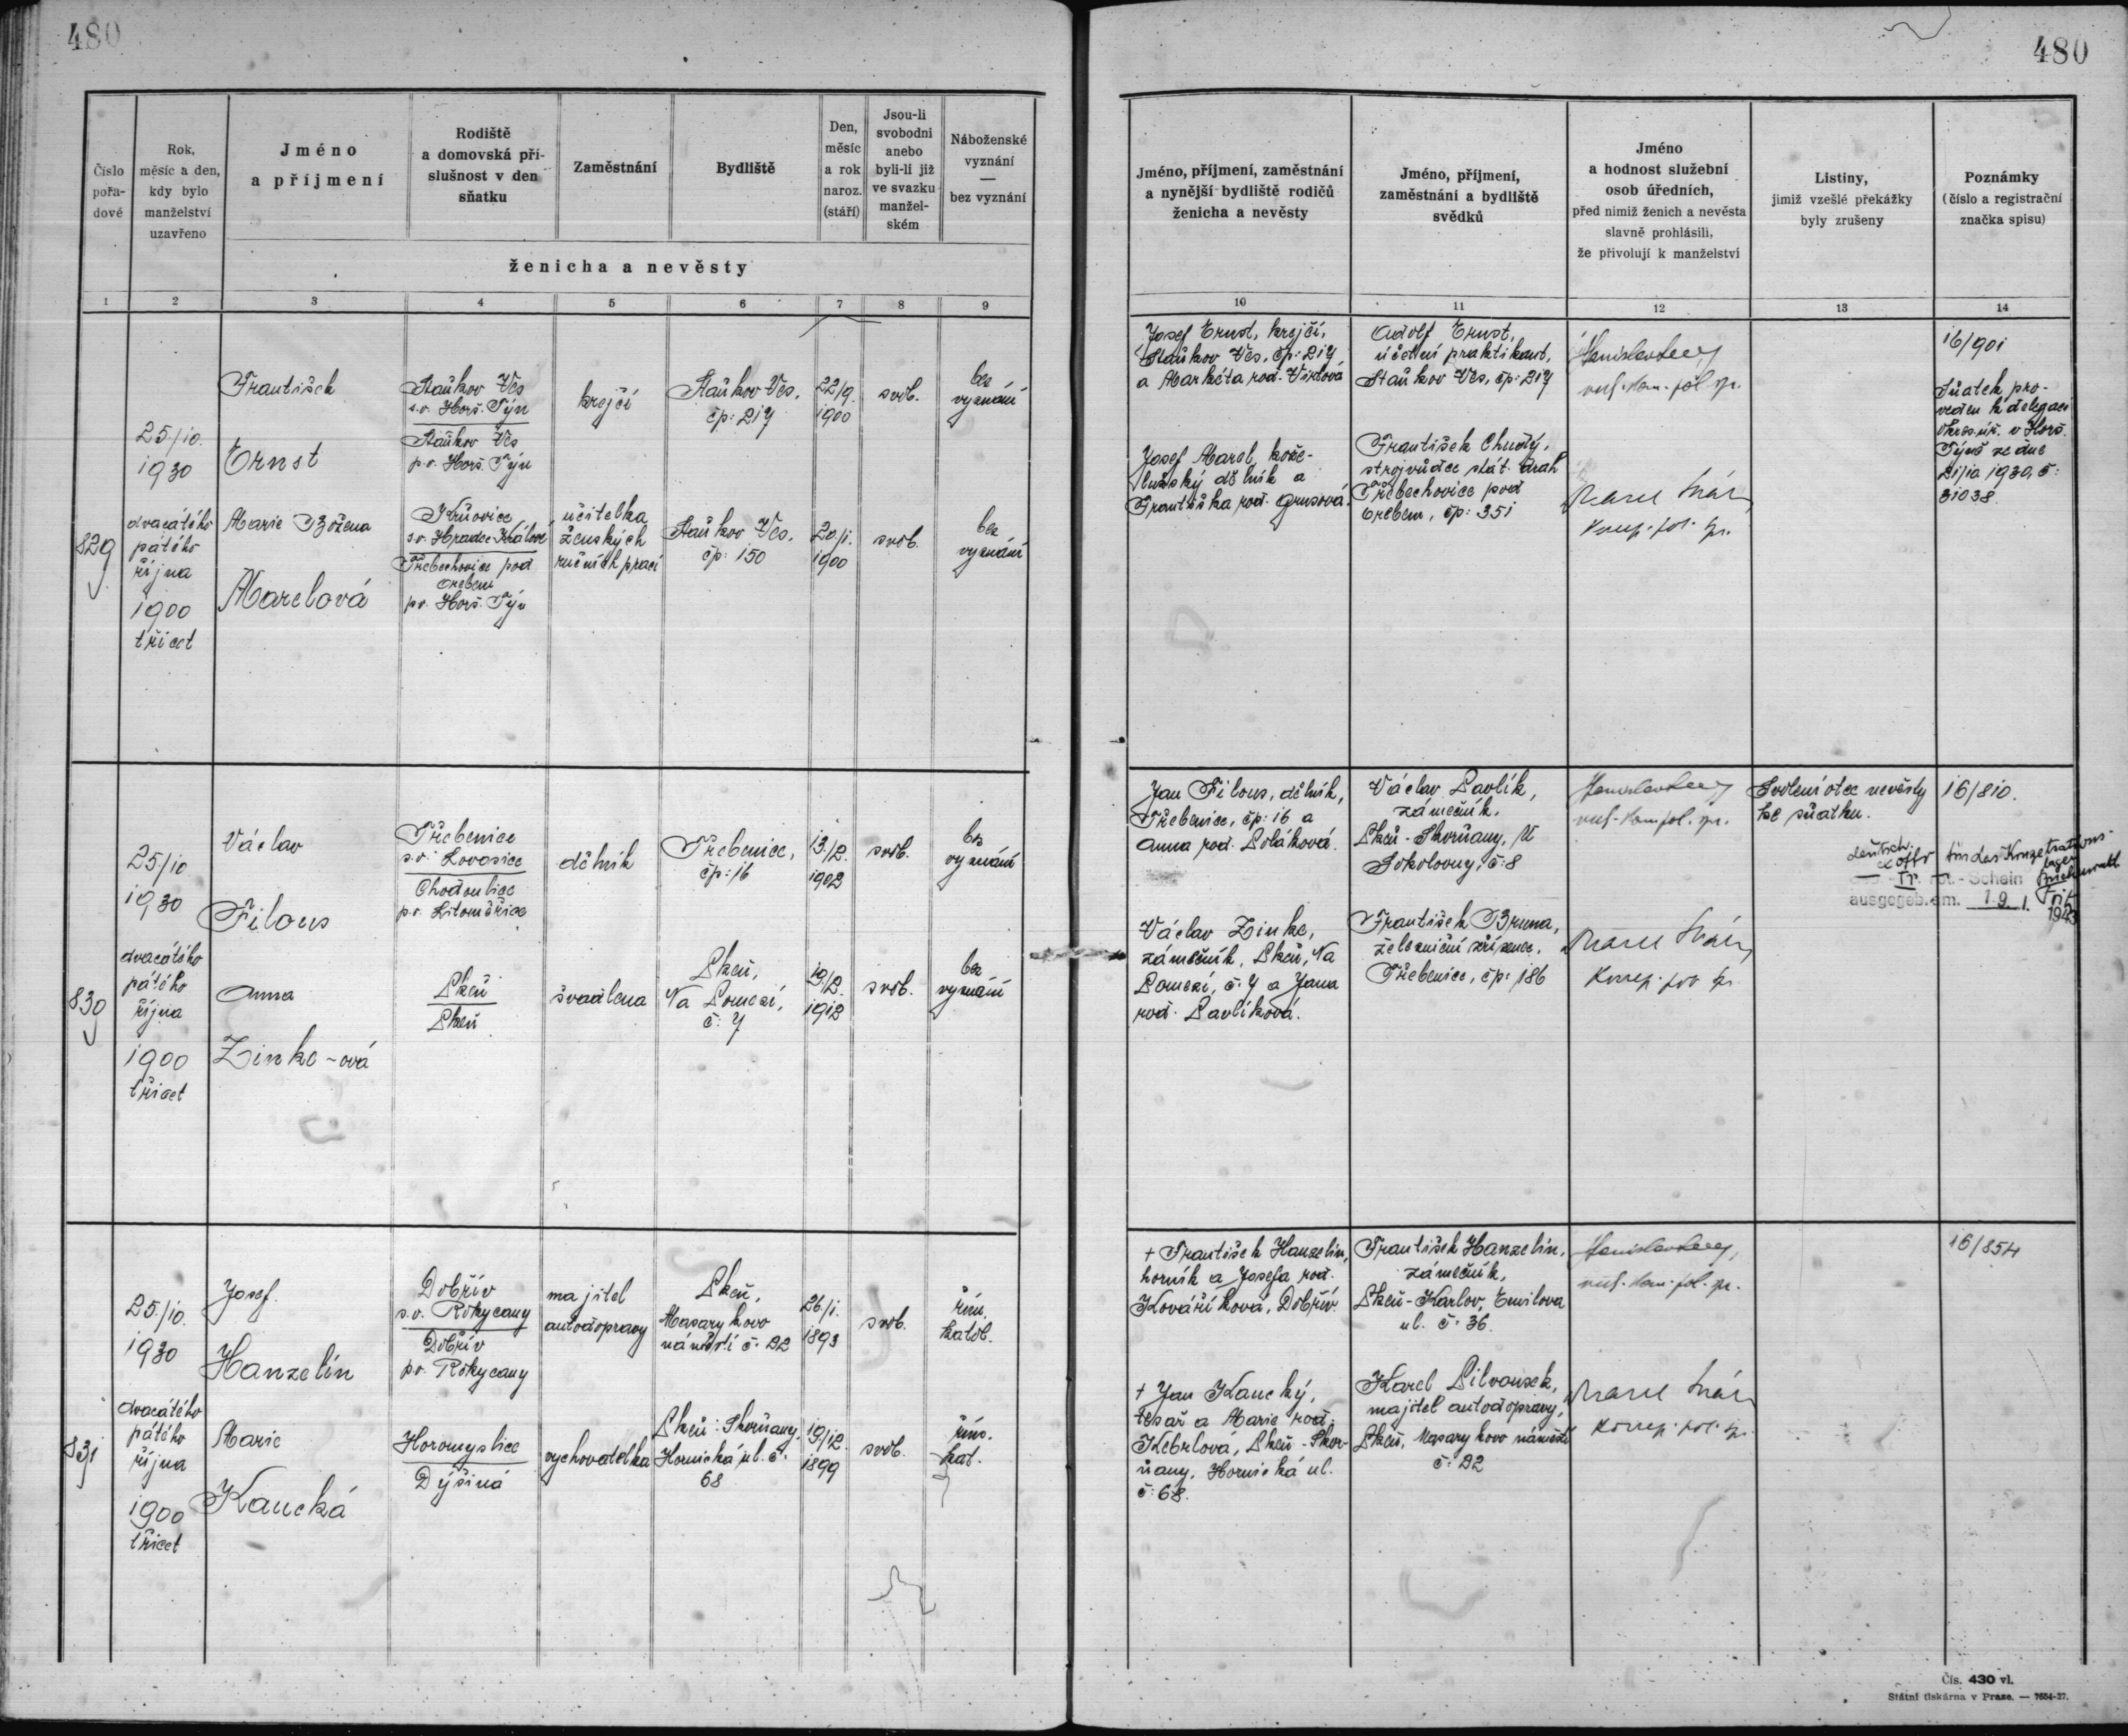 480
480
Číslo pořa-dové
Rok, měsíc a den, kdy bylo manželství uzavřeno
Jméno a příjmení
Rodiště a domovská pří-slušnost v den sňatku
Zaměstnání
Bydliště
Den, měsíc a rok naroz. (stáří)
Jsou-li svobodni anebo byli-li již ve svazku manžel-ském
Náboženské vyznání — bez vyznání
ženicha a nevěsty
1 2 3 4 5 6 7 8 9
829
25/10.
1930
dvacátého
pátého
října
1900
třicet
František
Ernst
Staňkov Ves
s.o. Horš. Týn
Staňkov Ves
p.o. Horš. Týn
krejčí
Staňkov Ves,
čp: 217
22/9.
1900
svob.
bez
vyznání
Marie Božena
Marelová
s.o. Hradec Králové
Třebechovice pod
Orebem
p.o. Horš. Týn
učitelka
ženských
ručních prací
Staňkov Ves,
čp: 150
20/1.
1900
svob.
bez
vyznání
830
25/10
1930
dvacátého
pátého
října
1900
třicet
Václav
Filous
Třebenice
s.o. Lovosice
Chodoulice
p.o. Litoměřice
dělník
Třebenice,
čp: 16
13/2.
1902
svob.
bez
vyznání
Anna
Zinke-ová
Plzeň
Plzeň
švadlena
Plzeň,
Na Pomezí,
č: 7
19/2.
1912
svob.
bez
vyznání
831
25/10.
1930
dvacátého
pátého
října
1900
třicet
Josef
Hanzelín
Dobřív
s.o. Rokycany
Dobřív
p.o. Rokycany
majitel
autodopravy
Plzeň,
Masarykovo
náměstí č: 22
26/1.
1893
svob.
řím.
katol.
Marie
Kaucká
Horomyslice
Dýšiná
vychovatelka
Plzeň-Skvrňany,
Hornická ul. č:
68
19/12.
1899
svob.
řím.
kat.
Jméno, příjmení, zaměstnání a nynější bydliště rodičů ženicha a nevěsty
Jméno, příjmení, zaměstnání a bydliště svědků
Jméno a hodnost služební osob úředních, před nimiž ženich a nevěsta slavně prohlásili, že přivolují k manželství
Listiny, jimiž vzešlé překážky byly zrušeny
Poznámky (číslo a registrační značka spisu)
10 11 12 13 14
Josef Ernst, krejčí,
Staňkov Ves, čp: 217
a Markéta rod. Virtová
Josef Marel, kože-
lužský dělník a
Františka rod. Grusová.
Adolf Ernst,
účetní praktikant,
Staňkov Ves, čp: 217
František Chudý,
strojvůdce stát. drah
Třebechovice pod
Orebem, čp: 351
16/901
Sňatek pro-
veden k delegaci
okres. úř. v Horš.
Týně ze dne
21/10 1930, č:
31038.
Jan Filous, dělník,
Třebenice, čp: 16 a
Anna rod. Poláková.
Václav Zinke,
zámečník, Plzeň, Na
Pomezí, č: 7 a Jana
rod. Pavlíková.
Václav Pavlík,
zámečník,
Plzeň-Skvrňany, U
Sokolovny, č: 8
František Bruma,
železniční zřízenec,
Třebenice, čp: 186
Svolení otce nevěsty
ke sňatku.
16/810.
Tr.
-Schein
ausgegeb. am. 1.9.
1943
† František Hanzelín,
horník a Josefa rod.
Kováříková, Dobřív.
† Jan Kaucký,
tesař a Marie rod.
Kebrlová, Plzeň-Skvr-
ňany, Hornická ul.
č: 68.
František Hanzelín,
zámečník,
Plzeň-Karlov, Emilova
ul. č: 36.
Karel Pilvousek,
majitel autodopravy,
Plzeň, Masarykovo náměstí
č: 22
16/854
Čís. 430 vl.
Státní tiskárna v Praze. — 7654-27.